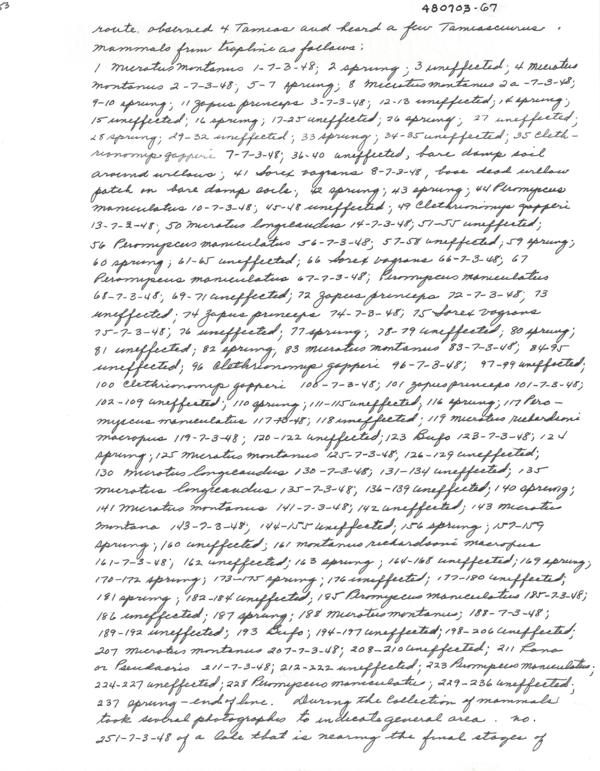 53
480703-67
route. observed 4 Tamias and heard a few Tamiasciurus.
mammals from trapline as follows:
1 Microtus montanus 1-7-3-48; 2 sprung; 3 uneffected; 4 Microtus
montanus 2-7-3-48; 5-7 sprung; 8 Microtus montanus 2a-7-3-48;
9-10 sprung; 11 Zapus princeps 3-7-3-48; 12-13 uneffected; 14 sprung;
15 uneffected; 16 sprung; 17-25 uneffected; 26 sprung; 27 uneffected;
28 sprung; 29-32 uneffected; 33 sprung; 34-35 uneffected; 35 Cleth-
rionomys gapperi 7-7-3-48; 36-40 uneffected, bare damp soil
around willows; 41 Sorex vagrans 8-7-3-48, base dead willow
patch on bare damp soils; 42 sprung; 43 sprung; 44 Peromyscus
maniculatus 10-7-3-48; 45-48 uneffected; 49 Clethrionomys gapperi
13-7-3-48; 50 Microtus longicaudus 14-7-3-48; 51-55 uneffected;
56 Peromyscus maniculatus 56-7-3-48; 57-58 uneffected; 59 sprung;
60 sprung; 61-65 uneffected; 66 Sorex vagrans 66-7-3-48; 67
Peromyscus maniculatus 67-7-3-48; Peromyscus maniculatus
68-7-3-48; 69-71 uneffected; 72 Zapus princeps 72-7-3-48; 73
uneffected; 74 Zapus princeps 74-7-3-48; 75 Sorex vagrans
75-7-3-48; 76 uneffected; 77 sprung; 78-79 uneffected; 80 sprung;
81 uneffected; 82 sprung; 83 Microtus montanus 83-7-3-48; 84-95
uneffected; 96 Clethrionomys gapperi 96-7-3-48; 97-99 uneffected;
100 Clethrionomys gapperi 100-7-3-48; 101 Zapus princeps 101-7-3-48;
102-109 uneffected; 110 sprung; 111-115 uneffected; 116 sprung; 117 Pero-
myscus maniculatus 117-7-3-48; 118 uneffected; 119 Microtus richardsoni
macropus 119-7-3-48; 120-122 uneffected; 123 Bufo 123-7-3-48; 124
sprung; 125 Microtus montanus 125-7-3-48; 126-129 uneffected;
130 Microtus longicaudus 130-7-3-48; 131-134 uneffected; 135
Microtus longicaudus 135-7-3-48; 136-139 uneffected; 140 sprung;
141 Microtus montanus 141-7-3-48; 142 uneffected; 143 Microtus
montana 143-7-3-48; 144-155 uneffected; 156 sprung; 157-159
sprung; 160 uneffected; 161 montanus richardsoni macropus
161-7-3-48; 162 uneffected; 163 sprung; 164-168 uneffected; 169 sprung;
170-172 sprung; 173-175 sprung; 176 uneffected; 177-180 uneffected;
181 sprung; 182-184 uneffected; 185 Peromyscus maniculatus 185-7-3-48;
186 uneffected; 187 sprung; 188 Microtus montanus; 188-7-3-48;
189-192 uneffected; 193 Bufo; 194-197 uneffected; 198-206 uneffected;
207 Microtus montanus 207-7-3-48; 208-210 uneffected; 211 Rana
or Pseudacris 211-7-3-48; 212-222 uneffected; 223 Peromyscus maniculatus;
224-227 uneffected; 228 Peromyscus maniculatu; 229-236 uneffected;
237 sprung - end of line. During the collection of mammals
took several photographs to indicate general area. no.
251-7-3-48 of a lake that is nearing the final stages of